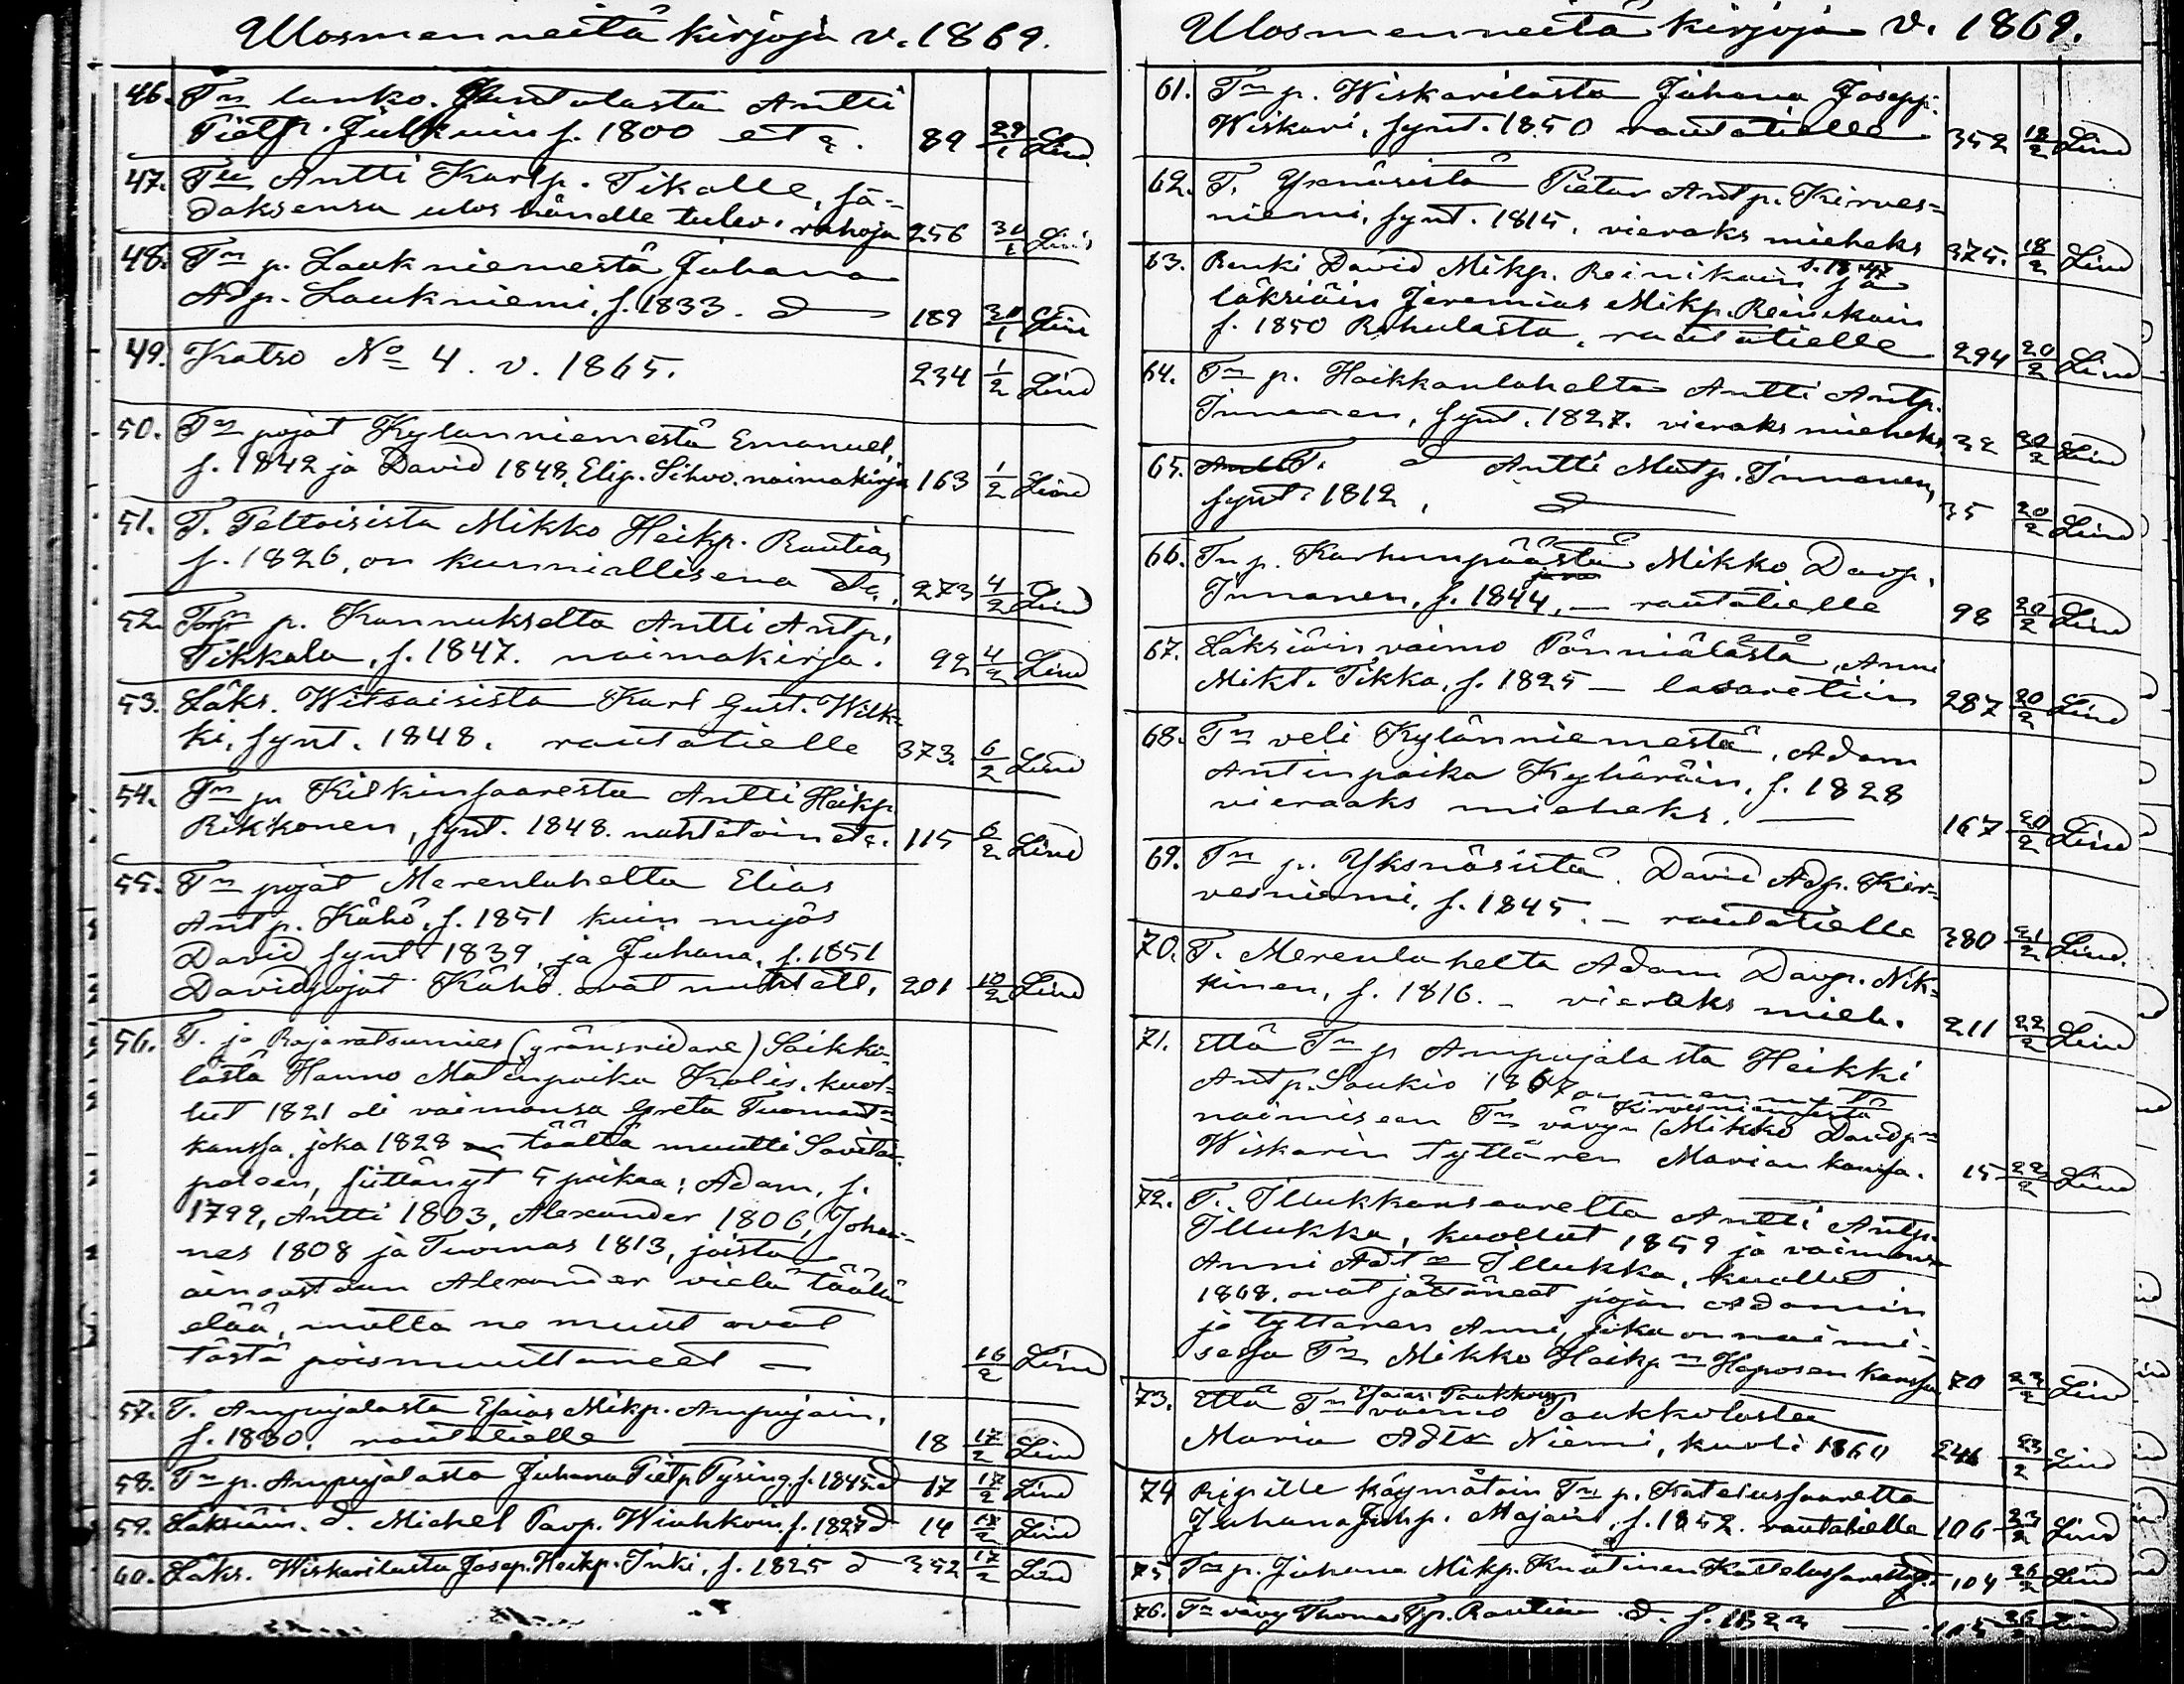 Ulosmenneitä kirjoja v. 1869.
46. Tn lanko Antti
Pietp. f. 1800 89 29/1 Lind
47. Antti Karlp. Tikalle, sä-
daksensa ulos hänelle tulev. rahoja 256 30/1 Lind
48. Tn p. Laukniemestä Juhana
Adp. Laukniemi, f. 1833. d 189 30/1 Lind
49. Katso No 4. v. 1865. 234 1/2 Lind
50. Tn pojat Kylänniemestä Emanuel,
f. 1842 ja David 1848, Elip. Sihvo. naimakirja 163 1/2 Lind
51. T. Peltoisista Mikko Heikp. Rautia,
f. 1826, on kunniallisena 273 4/2 Lind
52. p. Kannukselta Antti Antp.
Tikkala, f. 1847. naimakirja. 92 4/2 Lind
53. Läks. Witsaisista Karl Gust. Wilk-
ki, synt. 1848. rautatielle 373. 6/2 Lind
54. Tn p. Kilkinsaaresta Antti Heikp.
Rikkonen, synt. 1848. 115 6/2 Lind
55. Tn pojat Merenlahelta Elias
Antp. Kähö, f. 1851 kuin myös
David synt 1839, ja Juhana, f. 1851
Davidpojat Kähö. ovat 201 10/2 Lind
56. T. ja Rajaratsumies (gränsridare) Saikko-
lasta Hanno Matinpoika Kolis, kuol-
lut 1821 oli vaimonsa Greta Tuomaant.
kanssa, joka 1828 täältä muutti Savitai-
paleen, siittänyt 5 poikaa: Adam, f.
1799, Antti 1803, Alexander 1806, Johan-
nes 1808 ja Tuomas 1813, joista
ainoastaan Alexander vielä täälä
elää, mutta ne muut ovat
tästä poismuuttaneet — 16/2 Lind
57. T. Ampujalasta Esaias Mikp. Ampujain,
f. 1830. rautatielle 18 17/2 Lind
58. Tn p. Ampujalasta Juhana Pietp. Tysing, f. 1845. d 17 17/2 Lind
59. Läksiäin. d. Michel Pavp. f. 1827 d 14 Lind
60. Läks. Wiskarilasta Josep. Heikp. Inki, f. 1825 d 352 17/2 Lind
Ulosmenneitä kirjoja v. 1869.
61. Tn p. Wiskarilasta Juhana Josepp.
Wiskari, synt. 1850 rautatielle 352 18/2 Lind
62. T. Yxnäsistä Pietar Antp. Kirves-
niemi, synt. 1815. vieraks mieheks 375. 18/2 Lind
63. Renki David Mikp. Reinikain f. 1847 ja
läksiäin Jeremias Mikp. Reinikain
f. 1850 Rahulasta, rautatielle 294 20/2 Lind
64. Tn p. Haikkaanlahelta Antti Antp.
Innanen, synt. 1827. vieraks mieheks 32 20/2 Lind
65. T. d Antti Matp. Innanen,
synt. 1812, d 35 20/2 Lind
66. Tn p. Karhunpäästä Mikko Davp.
Innanen, f. 1844, — rautatielle 98 20/2 Lind
67. Läksiäin vaimo Pänniälästä, Anni
Mikt. Tikka, f. 1825 — lasarettiin 287 20/2 Lind
68. Tn veli Kylänniemestä, Adam
Antinpoika Kyhäräin, f. 1828
vieraaks mieheks. — 167 20/2 Lind
69. Tn p. Yksnäsistä. David Adp. Kir-
vesniemi, f. 1845. — rautatielle 380 21/2 Lind.
70. T. Merenlahelta Adam Davp. Nik-
kinen, f. 1816. — vieraks mieh. 211 22/2 Lind
71. Että Tn p Ampujalasta Heikki
Antp. Saukio 1867 on mennyt
naimiseen Tn vävyn Kirvesniemestä (Mikko Davidp.
Wiskarin tyttären Marian kanssa. 15 22/2 Lind
72. T. Illukkansaarelta Antti Antp.
Illukka, kuollut 1859 ja vaimonsa
Anni Adt. Illukka, kuollut
1868. ovat jättäneet pojan Adamin
ja tyttären Anni, joka on naimi-
sessa Tn Mikko Heikp. Haposen kanssa 70 22/2 Lind
73. Että Tn Esaias Paukkusen vaimo Paukkolasta
Maria Adt. Niemi, kuoli 1860 246 23/2 Lind
74 Ripille käymätöin Tn p. Kateussaarelta
Juhana Juhp. Majain, f. 1852. rautatielle 106 23/2 Lind
75. Tn p. Juhana Mikp. Knuutinen 104 26/2 Lind
76. Tn vävy Thomas Tp. Rautia d. f. 26/2 Lind